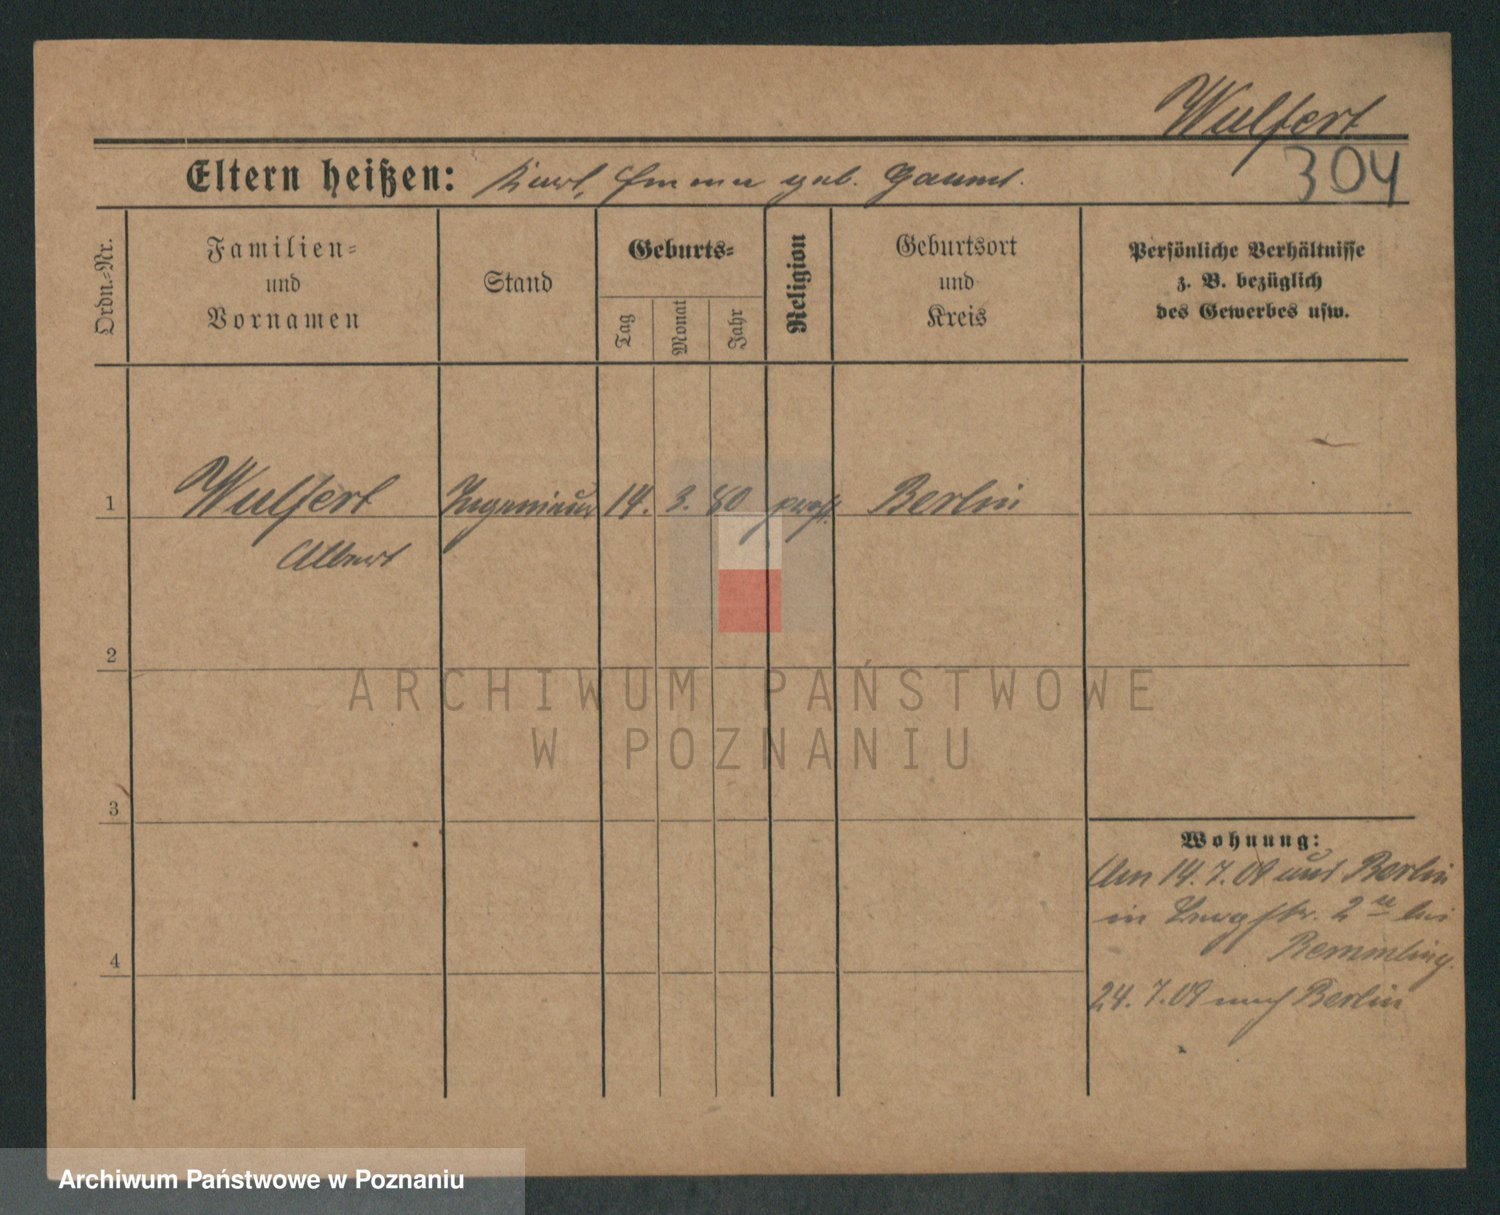 Wulfert
304
Eltern heißen: Karl, Emma geb.
Ordn.-Nr.
Familien-
und
Vornamen
Stand
Geburts-
Tag
Monat
Jahr
Religion
Geburtsort
und
Kreis
Persönliche Verhältnisse
z. B. bezüglich
des Gewerbes usw.
1 Wulfert Ingenieur 14. 3. 80 prot. Berlin
Albert
2
ARCHIWUM PAŃSTWOWE
W POZNANIU
3
Wohnung:
Am 14.7.09 aus Berlin
in 2 bei
Remmling.
4
24.7.09 nach Berlin
Archiwum Państwowe w Poznaniu